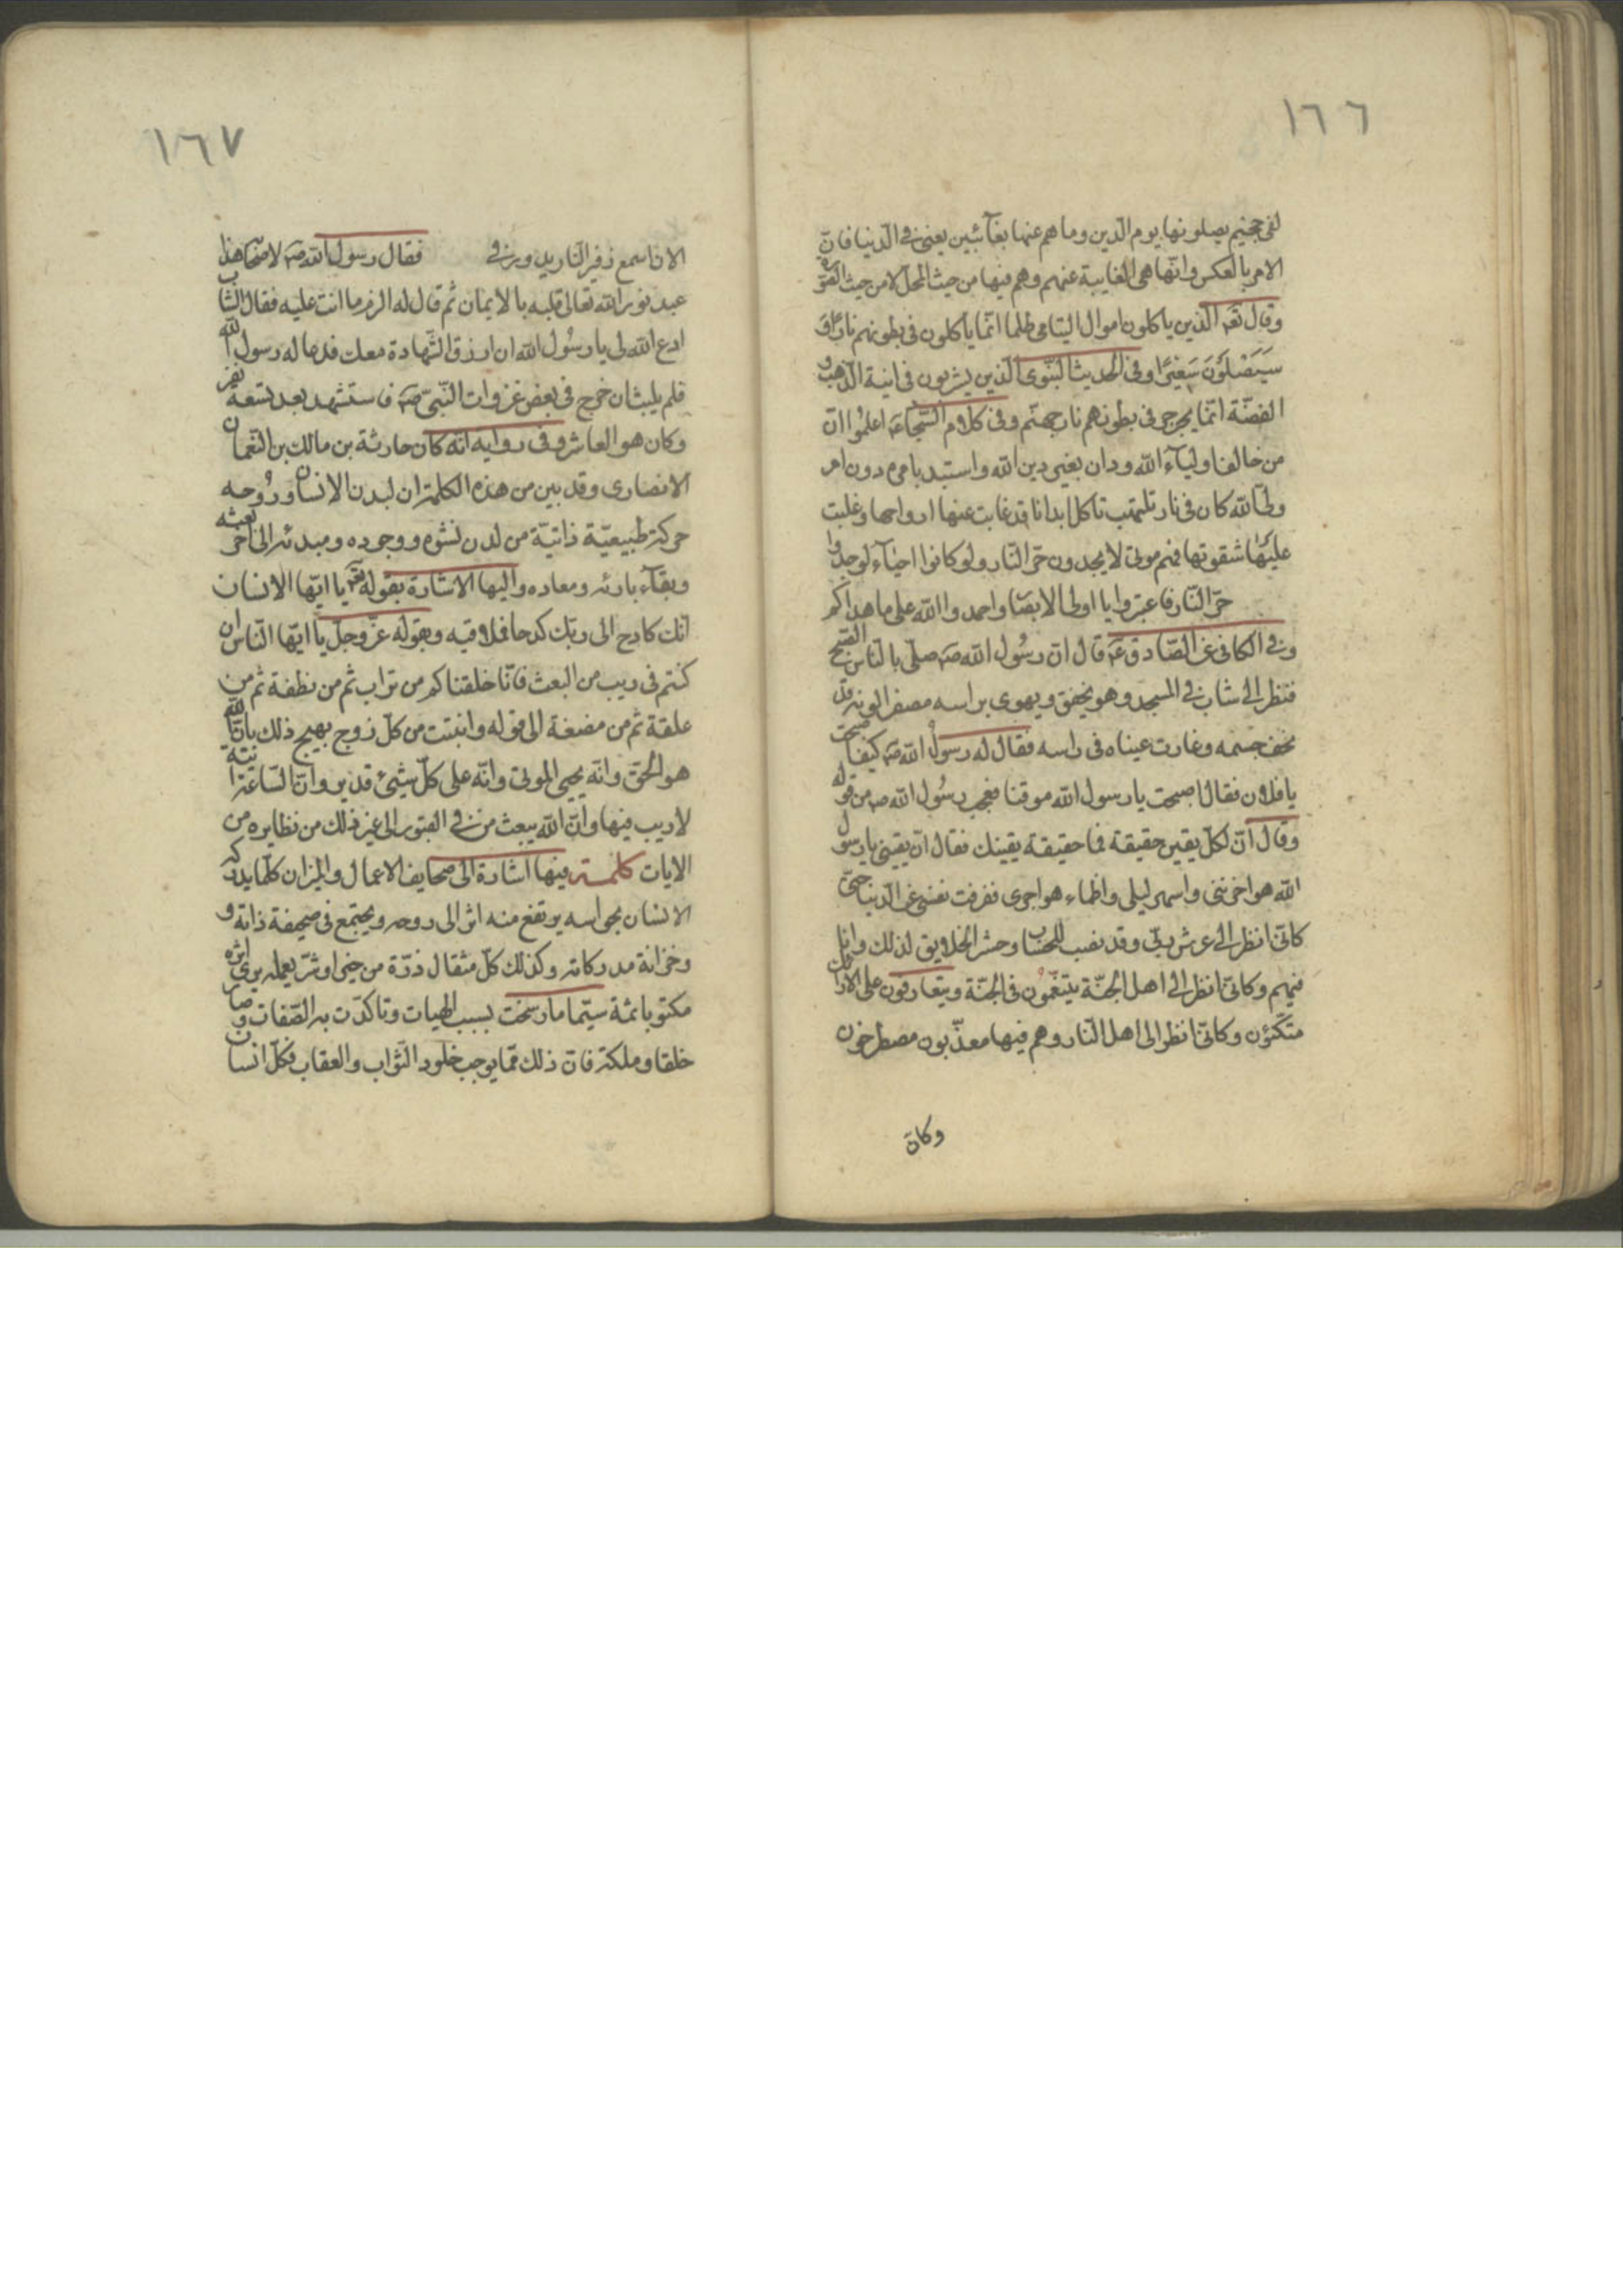 ١٦٦
لفي جحيم يصلونها يوم الدين وما هم عنها بغآئبين يعني في الدنيا فان
الامر بالعكس وانها هي الغايبة عنهم وهم فيها من حيث المحل لا من حيث الصورة
وقال تعه الذين ياكلون اموال اليتامى ظلما انما ياكلون في بطونهم نارا و
سيصلون سعيرا وفي الحديث النبوي الذين يشربون في انية الذهب و
الفضة انما يجرجر في بطونهم نار جهنم وفي كلام السجاد عه اعلموا ان
من خالف اوليآء الله ودان بغير دين الله واستبد بامره دون امر
ولي الله كان في نار تلتهب تاكل ابدانا قد غابت عنها ارواحها وغلبت
عليها شقوتها فهم موتى لا يجدون حر النار ولو كانوا احياء لوجدوا
حر النار فاعتبروا يا اولي الابصار واحمدوا الله على ما هداكم
وفي الكافي عن الصادق عه قال ان رسول الله صه صلى بالناس الصبح
فنظر الى شاب في المسجد وهو يخفق ويهوي براسه مصفرا لونه قد
نحف جسمه وغارت عيناه في راسه فقال له رسول الله صه كيف اصبحت
يا فلان فقال اصبحت يا رسول الله موقنا فعجب رسول الله صه من قوله
وقال ان لكل يقين حقيقة فما حقيقة يقينك فقال ان يقيني يا رسول
الله هو احزنني واسهر ليلي واظماء هواجري فعزفت نفسي عن الدنيا حتى
كاني انظر الى عرش ربي وقد نصب للحساب وحشر الخلايق لذلك وانا
فيهم وكاني انظر الى اهل الجنة يتنعمون في الجنة ويتعارفون على الارائك
متكئون وكاني انظر الى اهل النار وهم فيها معذبون مصطرخون
وكان
١٦٧
الان اسمع زفير النار يدور في فقال رسول الله صه لاصحابه هذا
عبد نور الله تعالى قلبه بالايمان ثم قال له الزم ما انت عليه فقال الشاب
ادع الله لي يا رسول الله ان ارزق الشهادة معك فدعا له رسول الله
فلم يلبث ان خرج في بعض غزوات النبي صه فاستشهد بعد تسعة نفر
وكان هو العاشر وفي رواية انه كان حارثة بن مالك بن النعمان
الانصاري وقد بين من هذه الكلمة ان لبدن الانسان وروحه
حركة طبيعية ذاتية من لدن نشوه ووجوده ومبدئه الى اخر بعثه
وبقآء بارئه ومعاده واليها الاشارة بقوله تعه يا ايها الانسان
انك كادح الى ربك كدحا فملاقيه وبقوله عز وجل يا ايها الناس ان
كنتم في ريب من البعث فانا خلقناكم من تراب ثم من نطفة ثم من
علقة ثم من مضغة الى قوله وانبتت من كل زوج بهيج ذلك بان الله
هو الحق وانه يحيي الموتى وانه على كل شيئ قدير وان الساعة اتية
لا ريب فيها وان الله يبعث من في القبور الى غير ذلك من نظايره من
الايات كلمة فيها اشارة الى صحايف الاعمال والميزان كلما يدركه
الانسان بحواسه يرتفع منه اثر الى روحه ويجتمع في صحيفة ذاته و
وخزانة مدركاته وكذلك كل مثقال ذرة من خير او شر يعمله يرى اثره
مكتوبا ثمة سيما ما رسخت بسبب الهيات وتاكدت به الصفات وصار
خلقا وملكة فان ذلك مما يوجب خلود الثواب والعقاب فكل انسان